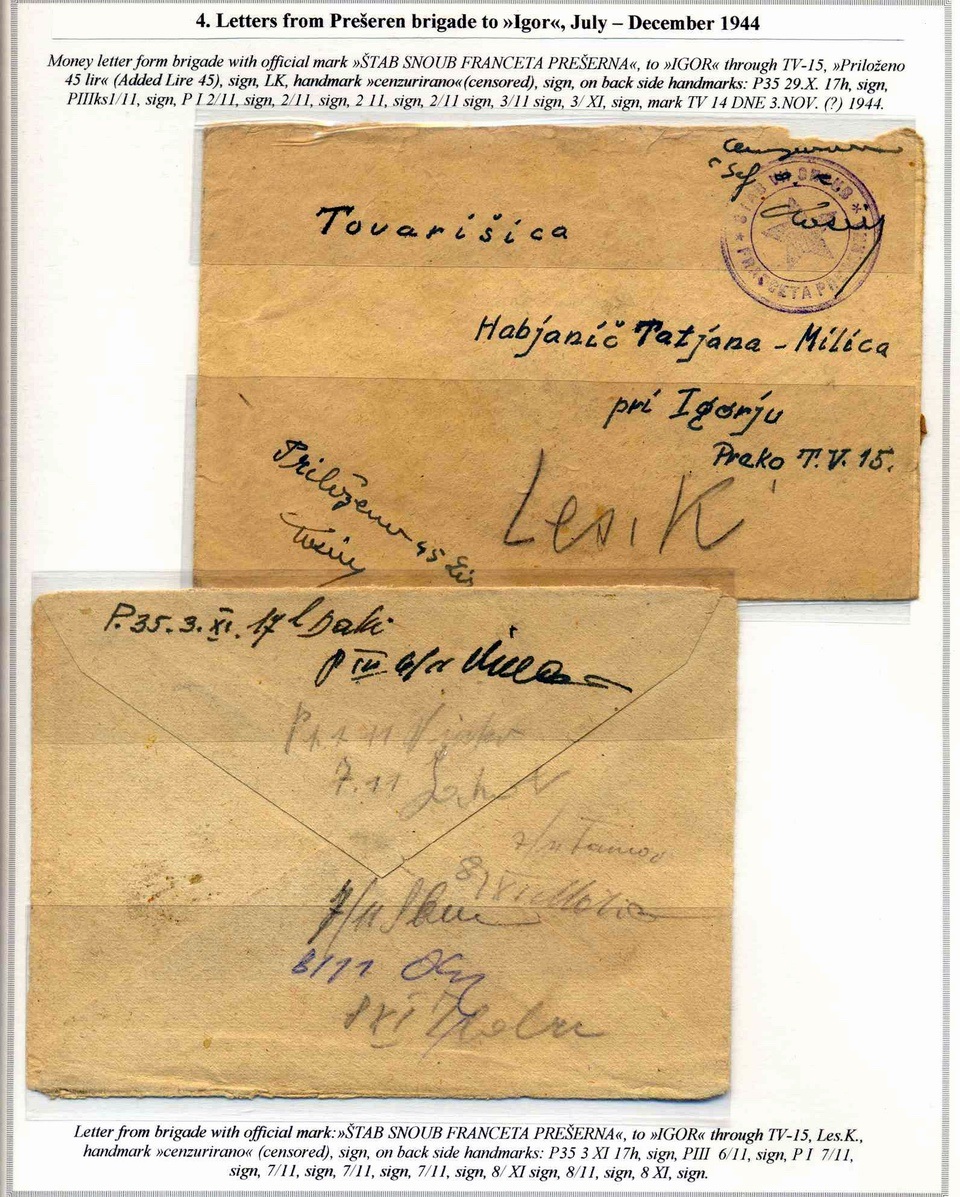 4. Letters from Prešeren brigade to »Igor«, July – December 1944
Money letter form brigade with official mark »ŠTAB SNOUB FRANCETA PREŠERNA«, to »IGOR« through TV-15, »Priloženo
45 lir« (Added Lire 45), sign, LK, handmark »cenzurirano«(censored), sign, on back side handmarks: P35 29.X. 17h, sign,
PIIIks1/11, sign, P I 2/11, sign, 2/11, sign, 2 11, sign, 2/11 sign, 3/11 sign, 3/ XI, sign, mark TV 14 DNE 3.NOV. (?) 1944.
ŠTAB SNOUB
FRANCETA PREŠERNA
Tovarišica
Habjanič Tatjana - Milica
pri Igorju
Preko T.V. 15.
Priloženo 45 Lir
Les. K
P.35. 3. XI. 17h
P III 6/11
7.11
7/11
8/XI
7/11
8/11
8 XI
Letter from brigade with official mark:»ŠTAB SNOUB FRANCETA PREŠERNA«, to »IGOR« through TV-15, Les.K.,
handmark »cenzurirano« (censored), sign, on back side handmarks: P35 3 XI 17h, sign, PIII 6/11, sign, P I 7/11,
sign, 7/11, sign, 7/11, sign, 7/11, sign, 8/ XI sign, 8/11, sign, 8 XI, sign.